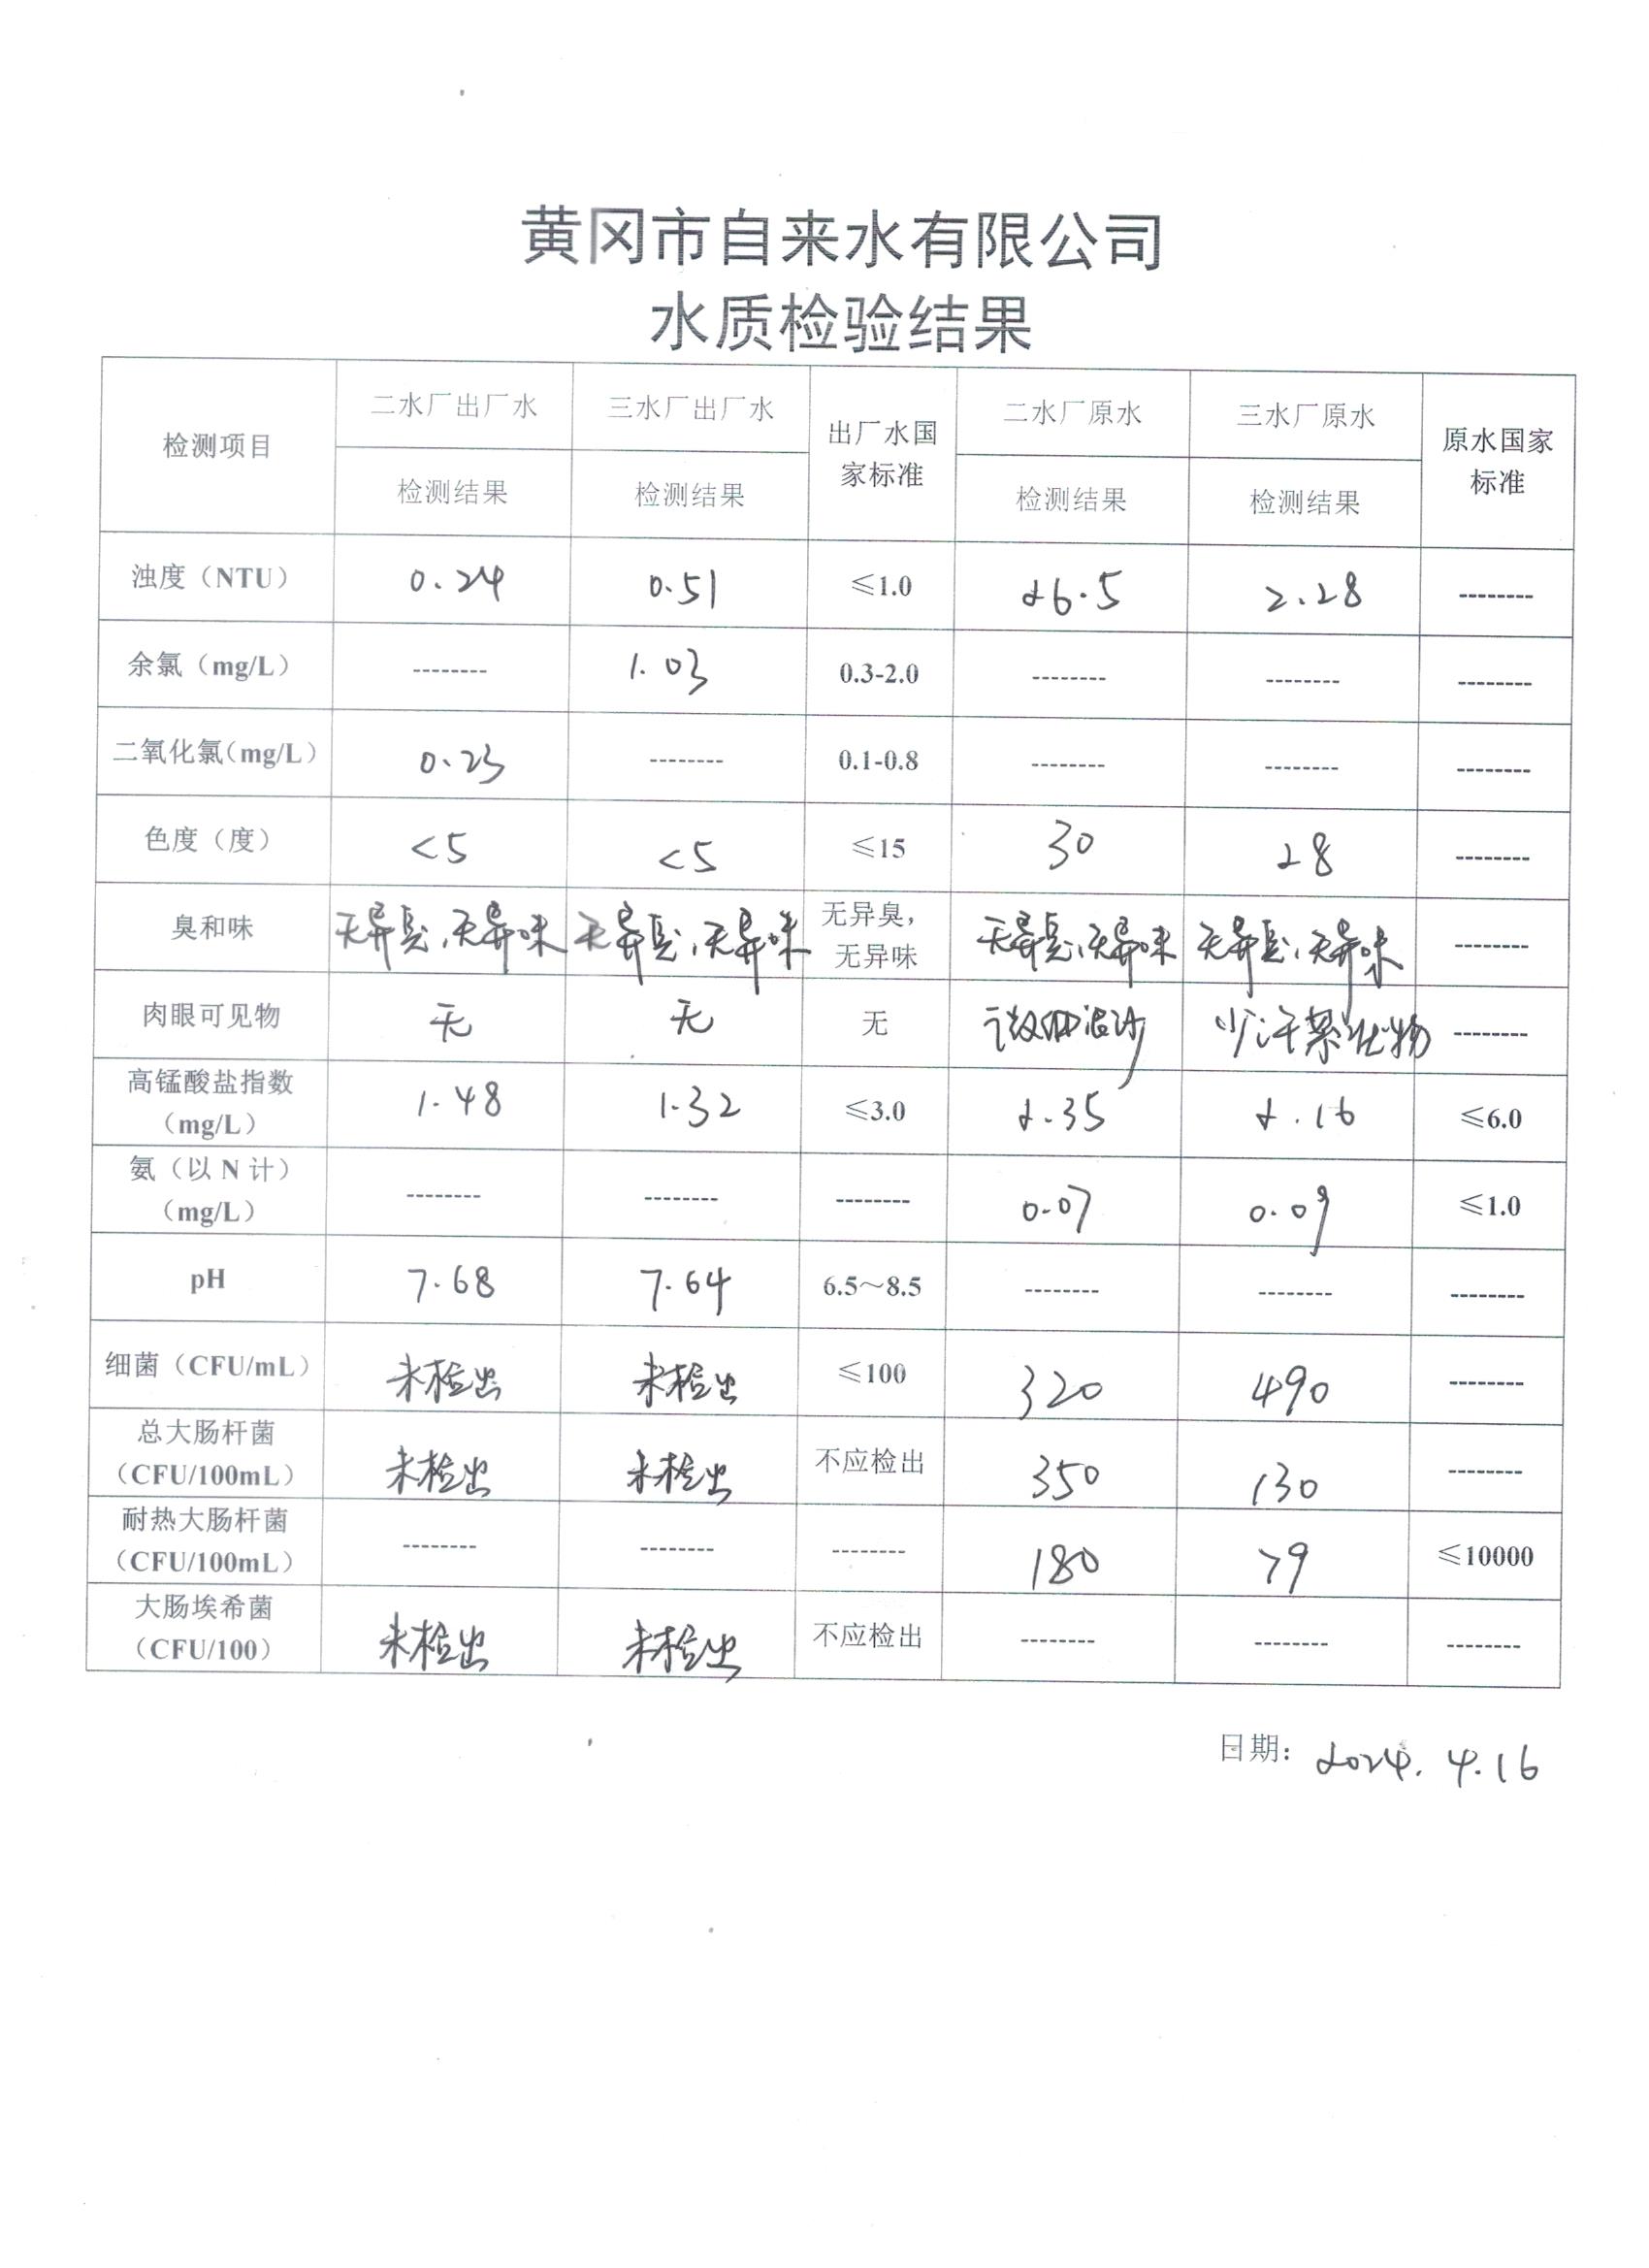 黄冈市自来水有限公司
水质检验结果
检测项目 二水厂出厂水 三水厂出厂水 出厂水国家标准 二水厂原水 三水厂原水 原水国家标准
检测结果 检测结果 检测结果 检测结果
浊度（NTU） 0.24 0.51 ≤1.0 26.5 2.28 --------
余氯（mg/L） -------- 1.03 0.3-2.0 -------- -------- --------
二氧化氯（mg/L） 0.23 -------- 0.1-0.8 -------- -------- --------
色度（度） <5 <5 ≤15 30 28 --------
臭和味 无异臭、无异味 无异臭、无异味 无异臭，无异味 无异臭、无异味 无异臭、无异味 --------
肉眼可见物 无 无 无 微细泥沙 少许 --------
高锰酸盐指数（mg/L） 1.48 1.32 ≤3.0 2.35 2.16 ≤6.0
氨（以 N 计）（mg/L） -------- -------- -------- 0.07 0.09 ≤1.0
pH 7.68 7.64 6.5～8.5 -------- -------- --------
细菌（CFU/mL） 未检出 未检出 ≤100 320 490 --------
总大肠杆菌（CFU/100mL） 未检出 未检出 不应检出 350 130 --------
耐热大肠杆菌（CFU/100mL） -------- -------- -------- 180 79 ≤10000
大肠埃希菌（CFU/100） 未检出 未检出 不应检出 -------- -------- --------
日期：2024.4.16